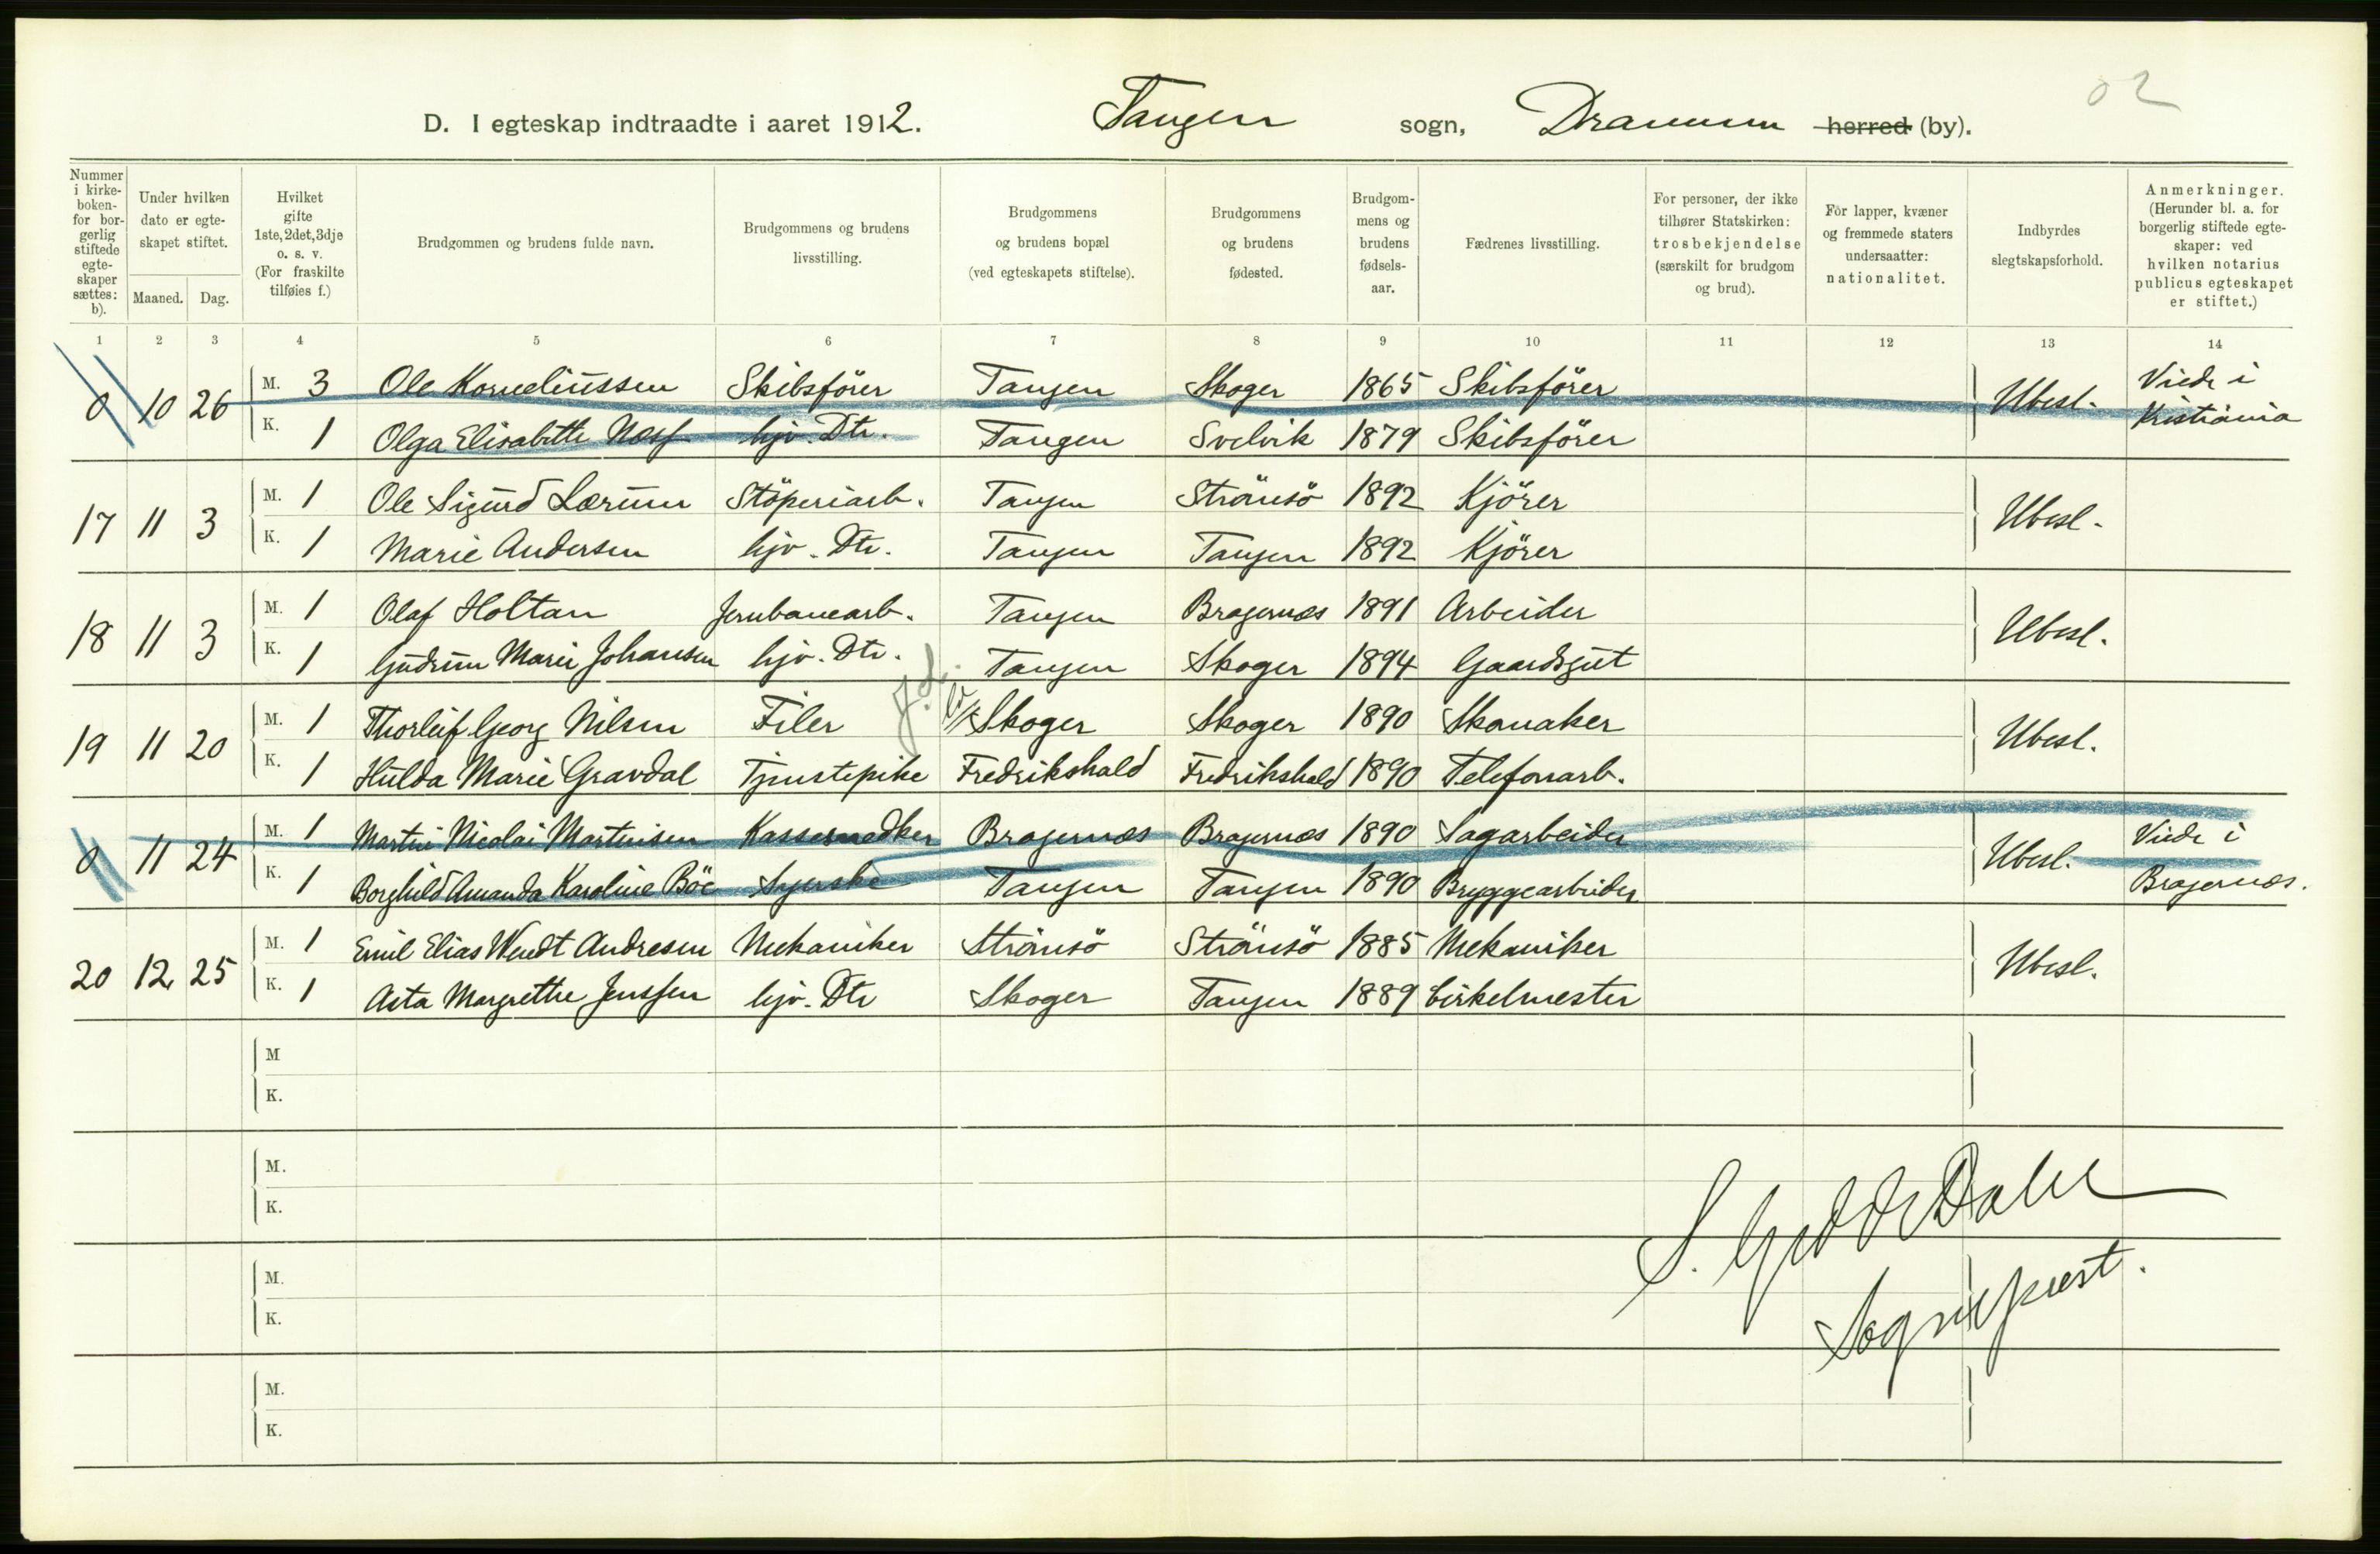 02
D. I egteskap indtraadte i aaret 1912. Tangen sogn, Drammen herred (by).
Nummer i kirkeboken- for borgerlig stiftede egteskaper sættes: b).
Under hvilken dato er egteskapet stiftet.
Maaned. Dag.
Hvilket gifte 1ste, 2det, 3dje o. s. v. (For fraskilte tilføies f.)
Brudgommen og brudens fulde navn.
Brudgommens og brudens livsstilling.
Brudgommens og brudens bopæl (ved egteskapets stiftelse).
Brudgommens og brudens fødested.
Brudgommens og brudens fødselsaar.
Fædrenes livsstilling.
For personer, der ikke tilhører Statskirken: trosbekjendelse (særskilt for brudgom og brud).
For lapper, kvæner og fremmede staters undersaatter: nationalitet.
Indbyrdes slegtskapsforhold.
Anmerkninger. (Herunder bl. a. for borgerlig stiftede egteskaper: ved hvilken notarius publicus egteskapet er stiftet.)
1 2 3 4 5 6 7 8 9 10 11 12 13 14
0 10 26 M. 3 Ole Korneliussen Skibsförer Tangen Skoger 1865 Skibsförer Ubesl. Viede i Kristiania
K. 1 Olga Elisabeth Næss hjv. Dtr. Tangen Svelvik 1879 Skibsförer
17 11 3 M. 1 Ole Sigurd Lærum Stöperiarb. Tangen Strömsö 1892 Kjörer Ubesl.
K. 1 Marie Andersen hjv. Dtr. Tangen Tangen 1892 Kjörer
18 11 3 M. 1 Olaf Holtan Jernbanearb. Tangen Bragernæs 1891 Arbeider Ubesl.
K. 1 Gudrun Marie Johansen hjv. Dtr. Tangen Skoger 1894 Gaardsgut
19 11 20 M. 1 Thorleif Georg Nilsen Filer Skoger Skoger 1890 Skomaker Ubesl.
K. 1 Hulda Marie Gravdal Tjenestepike Fredrikshald Fredrikshald 1890 Telefonarb.
0 11 24 M. 1 Martin Nicolai Martinsen Kassesnedker Bragernæs Bragernæs 1890 Sagarbeider Ubesl. Viede i Bragernæs.
K. 1 Borghild Amanda Karoline Böe Syerske Tangen Tangen 1890 Bryggearbeider
20 12 25 M. 1 Emil Elias Wendt Andresen Mekaniker Strömsö Strömsö 1885 Mekaniker Ubesl.
K. 1 Asta Margrethe Jenssen hjv. Dtr Skoger Tangen 1889 Cirkelmester
M
K.
M.
K.
M.
K.
M.
K.
S. Gedde Dahl
Sogneprest.